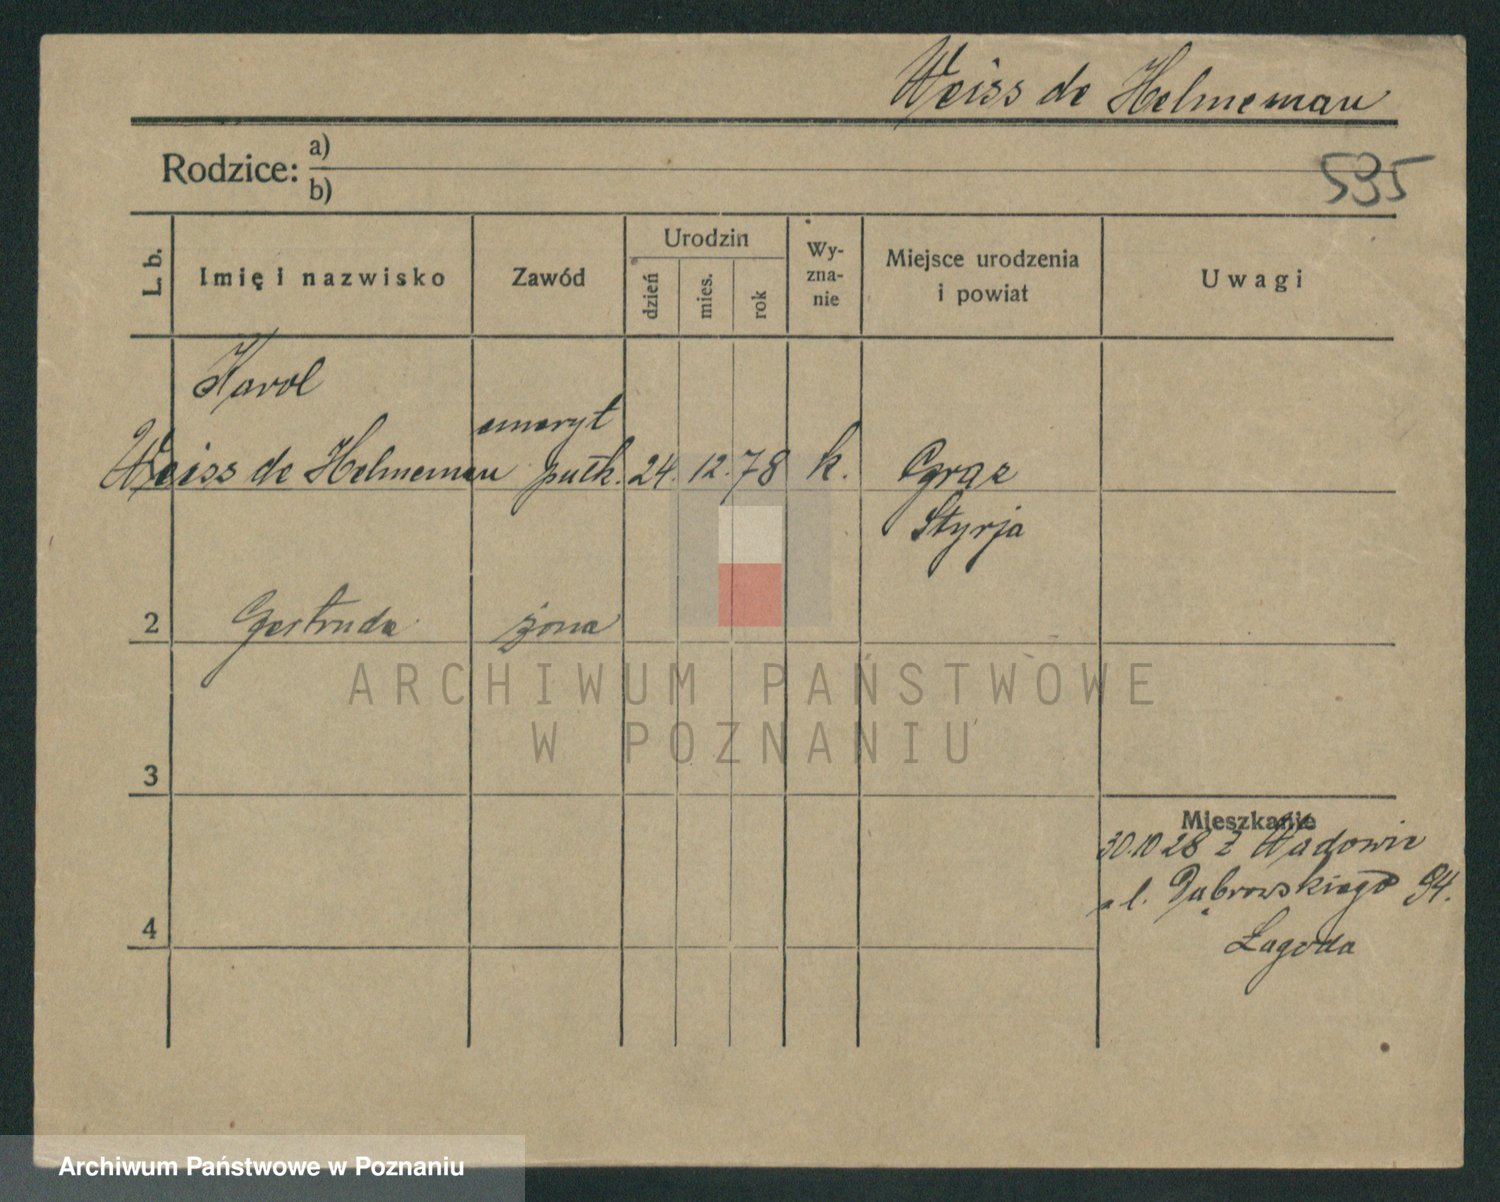 Weiss de Helmeman
Rodzice: a)
b)
535
L. b.
Imię i nazwisko
Zawód
Urodzin
dzień
mies.
rok
Wy-
zna-
nie
Miejsce urodzenia
i powiat
Uwagi
Karol
Weiss de Helmeman
emeryt
pułk.
24. 12. 78
k.
Graz
Styrja
2
Gertruda
żona
ARCHIWUM PAŃSTWOWE
W POZNANIU
3
Mieszkanie
30.10 28 z Wadowic
ul. Dąbrowskiego 94.
Łagoda
4
Archiwum Państwowe w Poznaniu